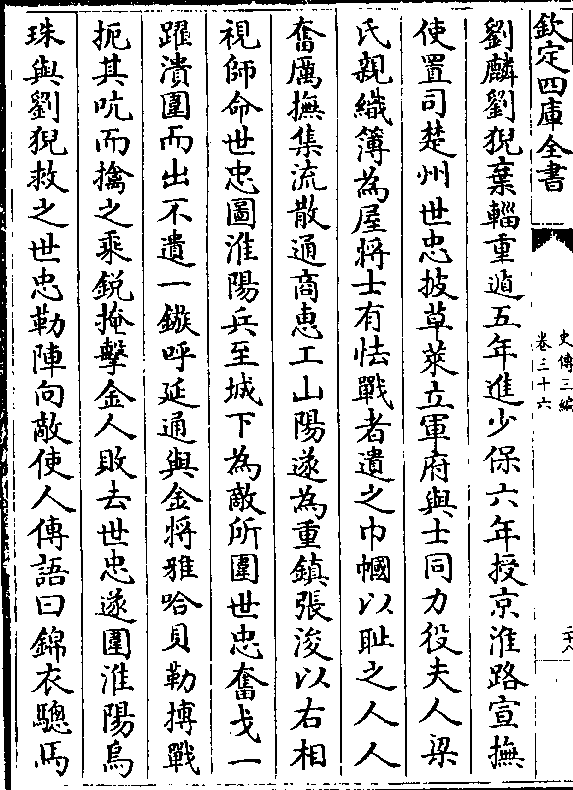 欽定四庫全書
史傳三編
卷三十六
二六
劉麟劉猊棄輜重遁五年進少保六年授京淮路宣撫
使置司楚州世忠披草萊立軍府與士同力役夫人梁
氏親織簿為屋將士有怯戰者遺之巾幗以耻之人人
奮厲撫集流散通商惠工山陽遂為重鎮張浚以右相
視師命世忠圖淮陽兵至城下為敵所圍世忠奮戈一
躍潰圍而出不遺一鏃呼延通與金將雅哈貝勒搏戰
扼其吭而擒之乘銳掩擊金人敗去世忠遂圍淮陽烏
珠與劉猊救之世忠勒陣向敵使人傳語曰錦衣驄馬